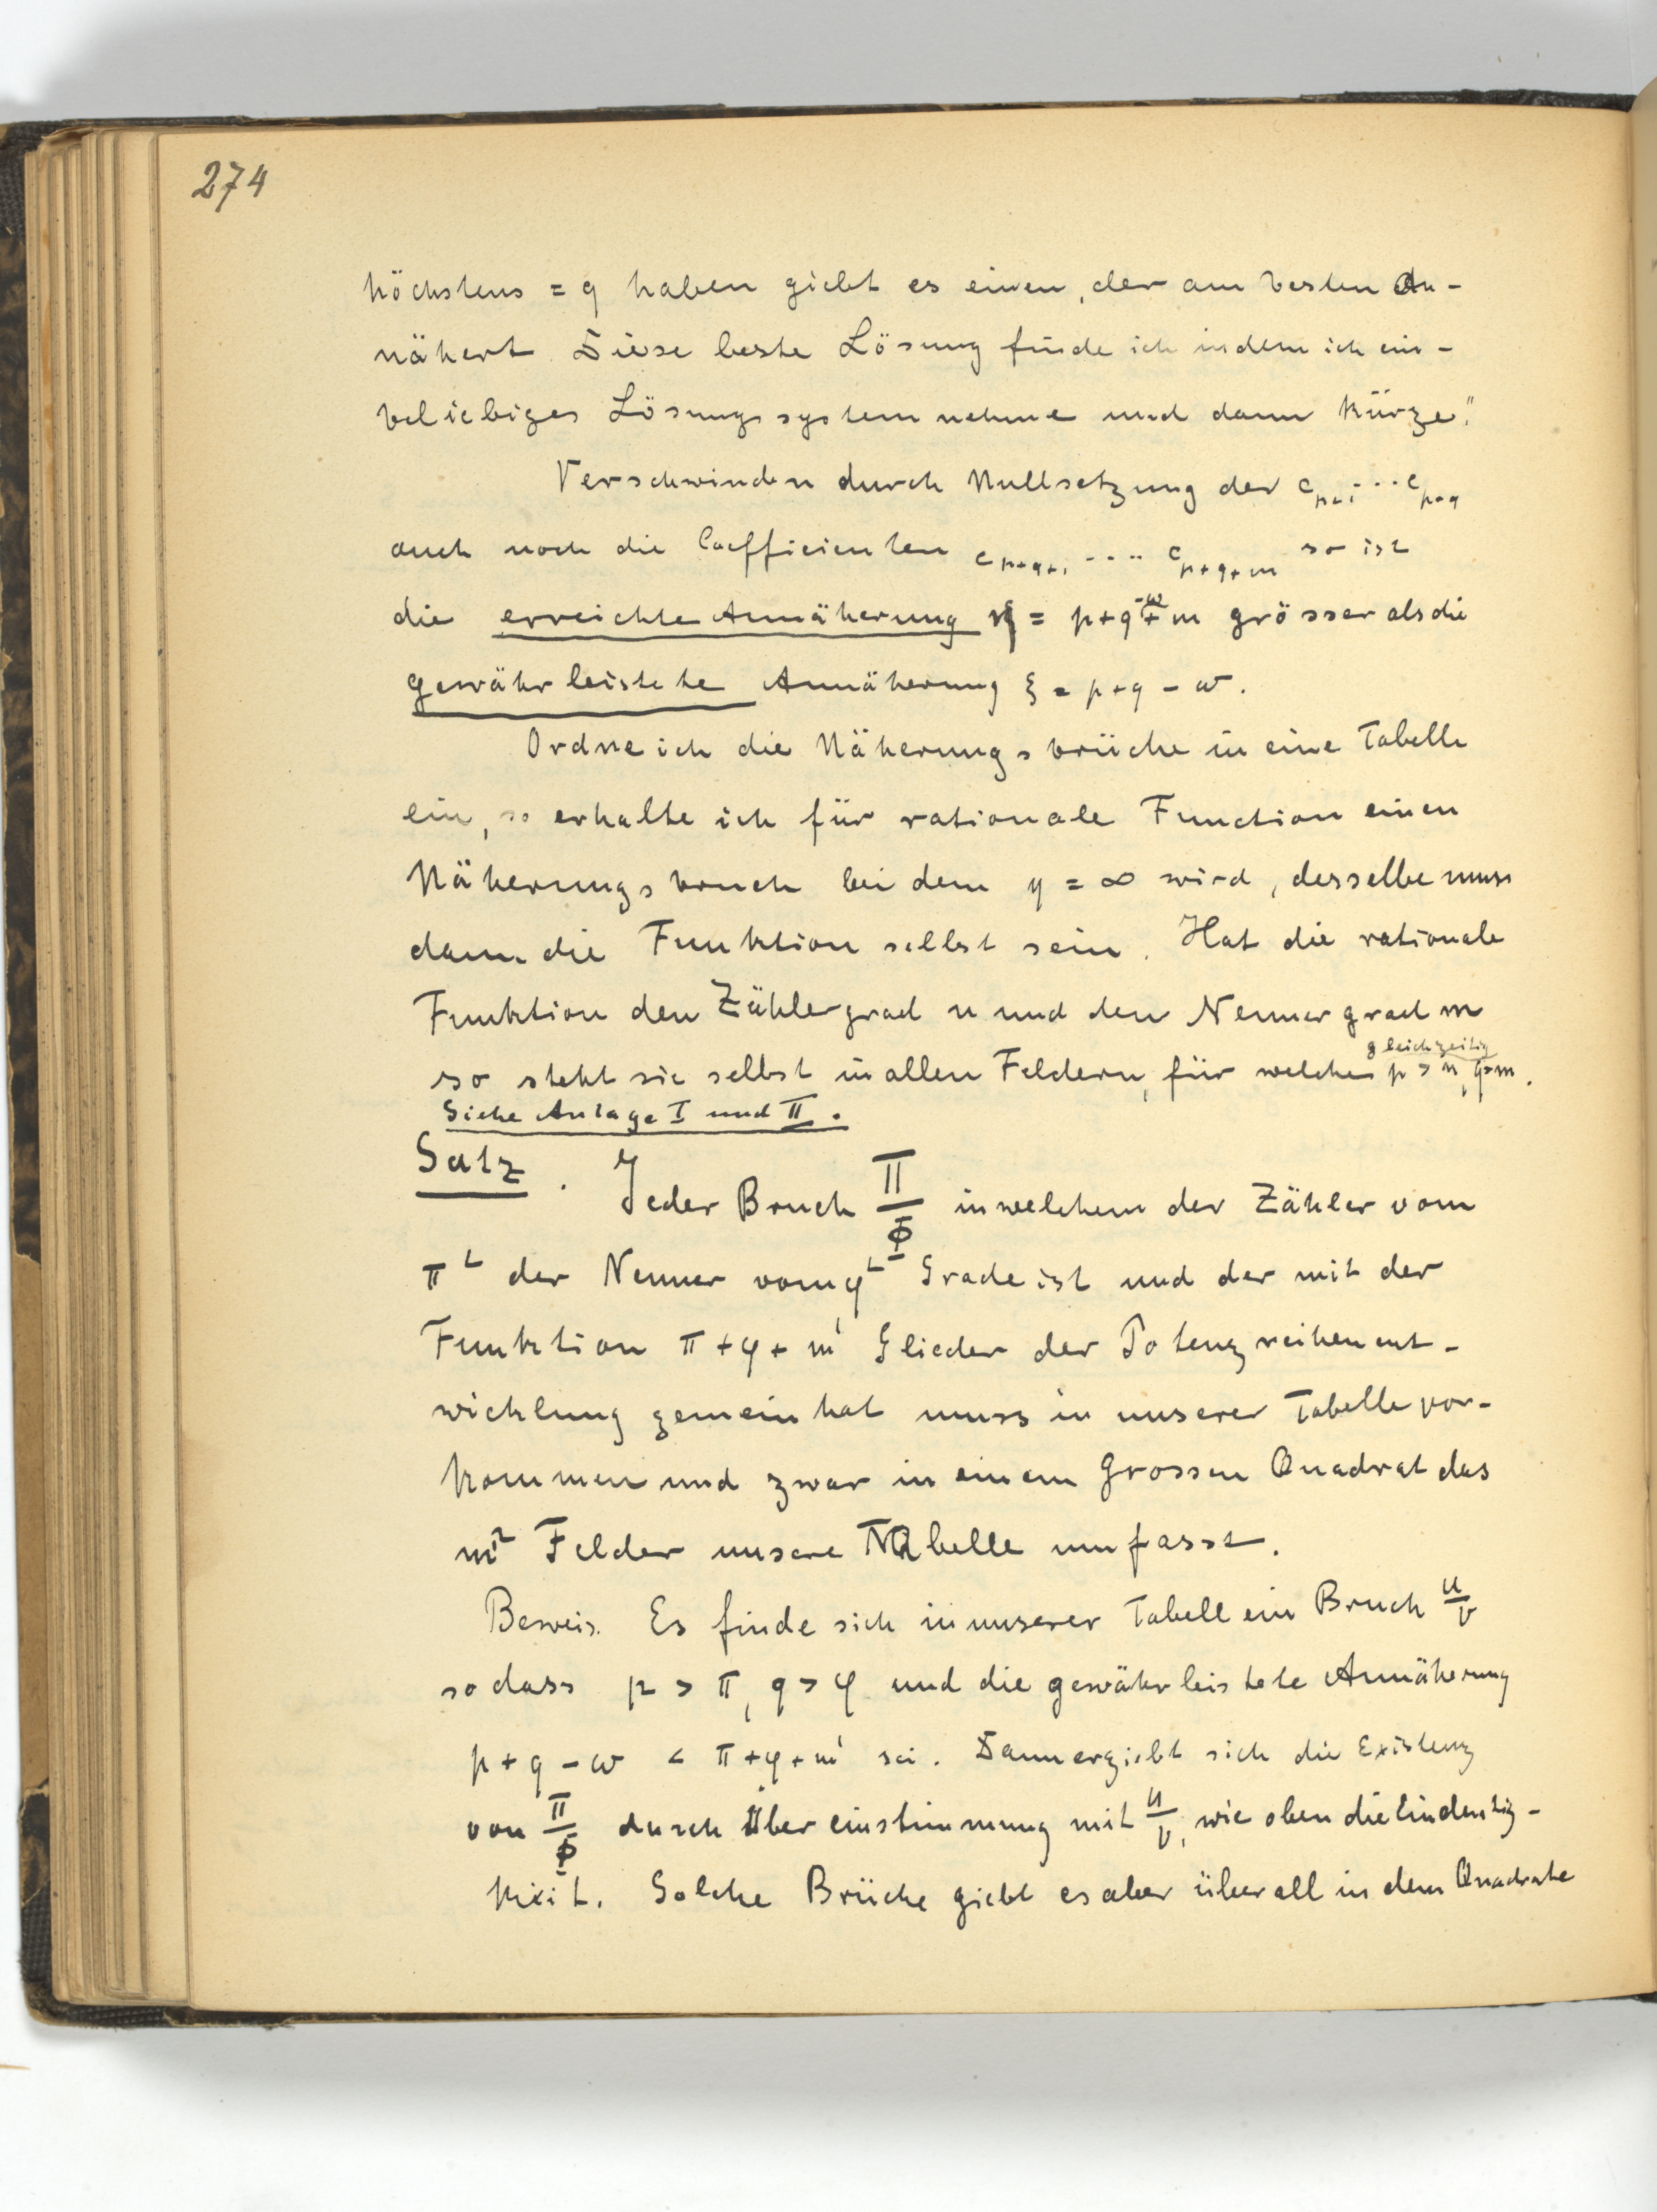 274
höchstens = q haben giebt es einen, der am besten an-
nähert Diese beste Lösung finde ich indem ich ein-
beliebiges Lösungssystem nehme und dann kürze."
Verschwinden durch Nullsetzung der c_{p+1} ... c_{p+q}
auch noch die Coefficienten c_{p+q+1} .... c_{p+q+m} so ist
die erreichte Annäherung η = p+q-ω+m grösser als die
gewährleistete Annäherung ξ = p+q-ω.
Ordne ich die Näherungsbrüche in eine Tabelle
ein, so erhalte ich für rationale Function einen
Näherungsbruch bei dem η = ∞ wird, desselbe muss
dann die Funktion selbst sein. Hat die rationale
Funktion den Zählergrad n und den Nennergrad m
gleichzeitig
so steht sie selbst in allen Feldern, für welche p > n, q > m.
Siehe Anlage I und II.
Satz. Jeder Bruch Π/Φ in welchem der Zähler vom
π^t der Nenner vom φ^t Grade ist und der mit der
Funktion π+φ+m' Glieder der Potenzreihenent-
wicklung gemein hat muss in unserer Tabelle vor-
kommen und zwar in einem Grossen Quadrat das
m'² Felder unsere Tabelle umfasst.
Beweis. Es finde sich in unserer Tabell ein Bruch u/v
sodass p > π, q > φ und die gewährleistete Annäherung
p+q-ω < π+φ+m' sei. Dann ergiebt sich die Existenz
von Π/Φ durch Übereinstimmung mit u/v, wie oben die Eindeutig-
keit. Solche Brüche giebt es aber überall in dem Quadrate